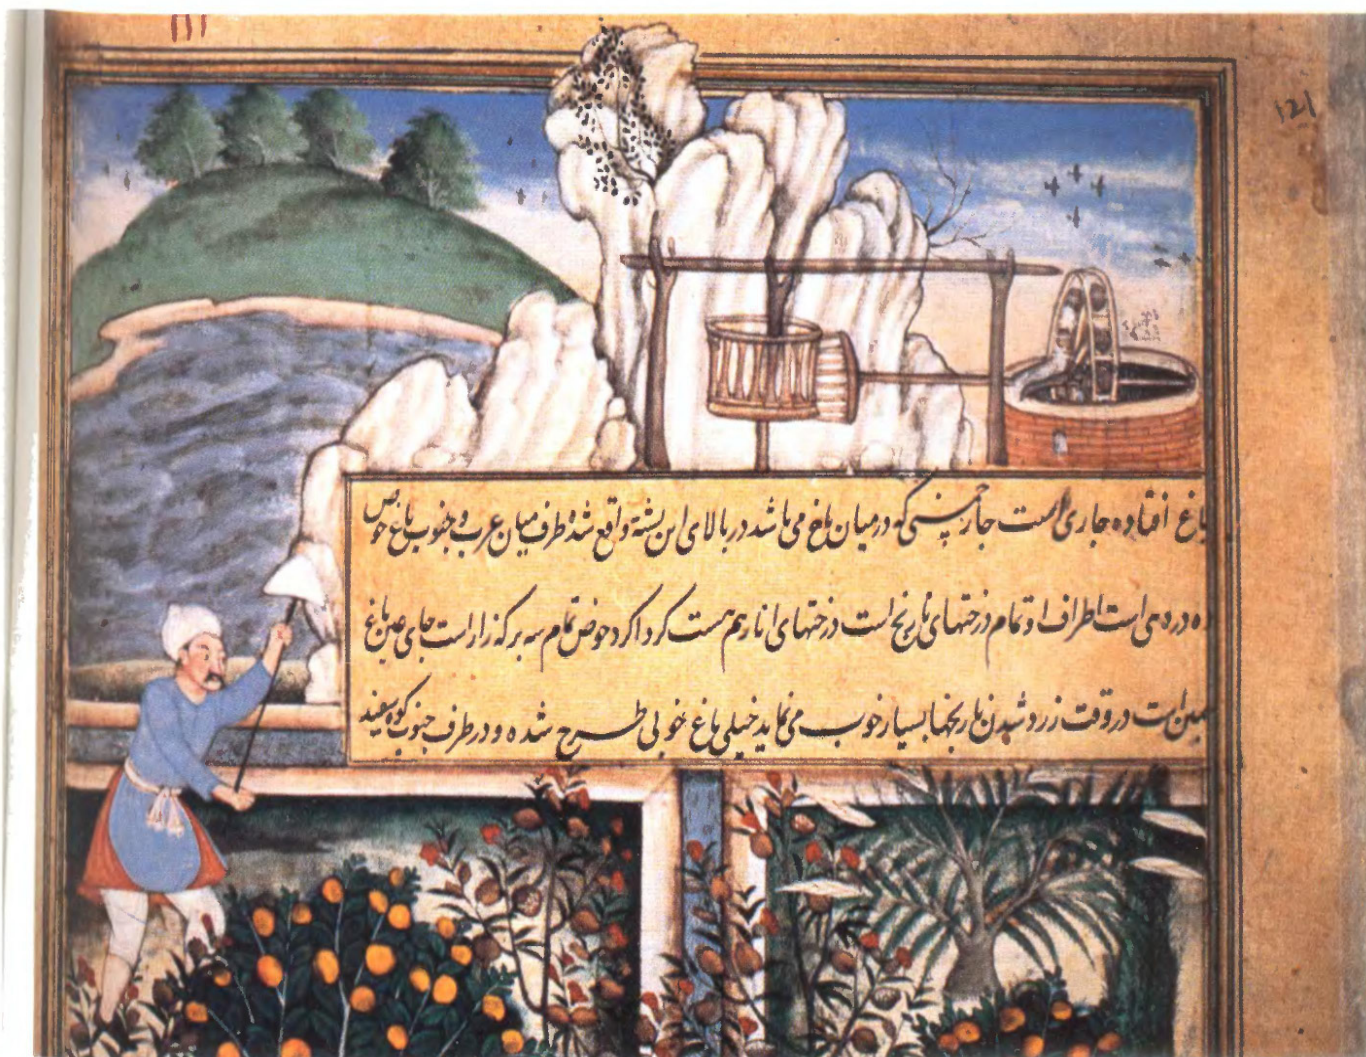 ۱۲۱
باغ افتاده جاری است چارچمنی که درمیان باغ می باشد در بالای این پشته واقع شده طرف میان غرب و جنوب باغ حوض
ده در دهی است اطراف او تمام درختهای نارنج است درختهای انار هم هست گرداگرد حوض تمام سه برکه زار است جای عین باغ
همین است در وقت زرد شدن نارنجها بسیار خوب می نماید خیلی باغ خوبی طرح شده و در طرف جنوب کوه سفید